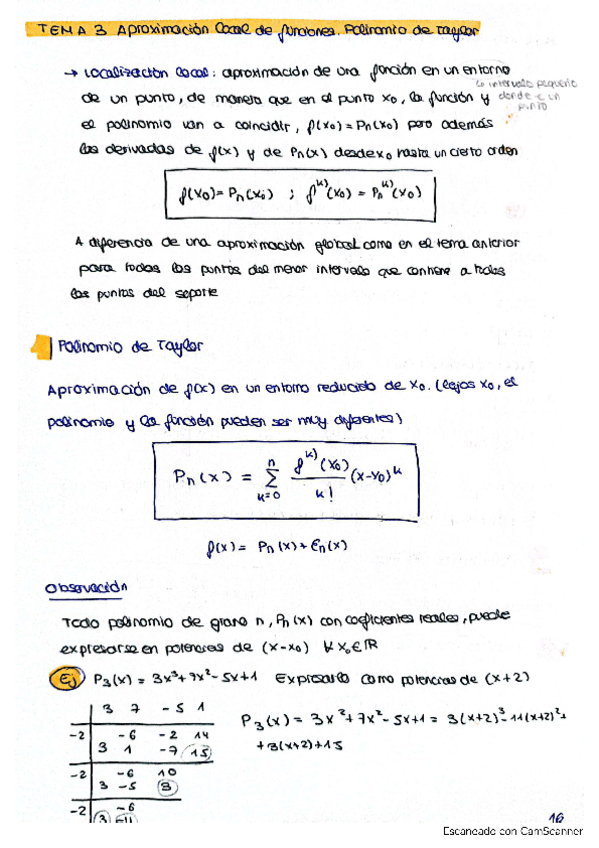 TEMA 3 Aproximación local de funciones. Polinomio de Taylor
→ Localización local: aproximación de una función en un entorno
↳ intervalo pequeño
de un punto, de manera que en el punto x₀, la función y
donde ∈ un
punto
el polinomio van a coincidir, f(x₀) = Pn(x₀) pero además
las derivadas de f(x) y de Pn(x) desde x₀ hasta un cierto orden
f(x₀) = Pn(x₀) ; f^(k)(x₀) = Pn^(k)(x₀)
A diferencia de una aproximación global como en el tema anterior
para todos los puntos del menor intervalo que contiene a todos
los puntos del soporte
1 Polinomio de Taylor
Aproximación de f(x) en un entorno reducido de x₀. (lejos x₀, el
polinomio y la función pueden ser muy diferentes)
Pn(x) = Σ_{k=0}^{n} f^(k)(x₀)/k! (x-x₀)^k
f(x) = Pn(x) + En(x)
Observación
Todo polinomio de grado n, Pn(x) con coeficientes reales, puede
expresarse en potencias de (x-x₀) ∀ x₀∈ℝ
Ej P₃(x) = 3x³+7x²-5x+1 Expresarlo como potencias de (x+2)
3 7 -5 1
-2 -6 -2 14
3 1 -7 15
-2 -6 10
3 -5 3
-2 -6
3 -11
P₃(x) = 3x³+7x²-5x+1 = 3(x+2)³-11(x+2)²+
+3(x+2)+15
16
Escaneado con CamScanner